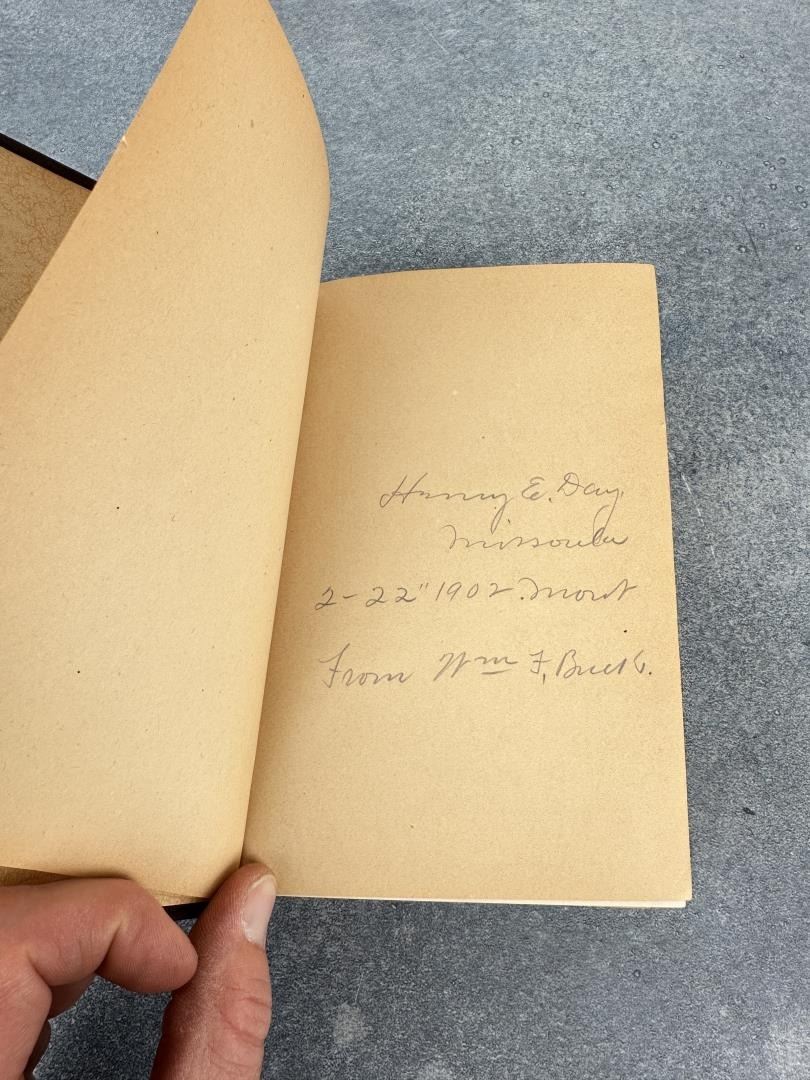 Henry E. Day
Missoula
2-22" 1902. Mont
From Wm F, Buck.